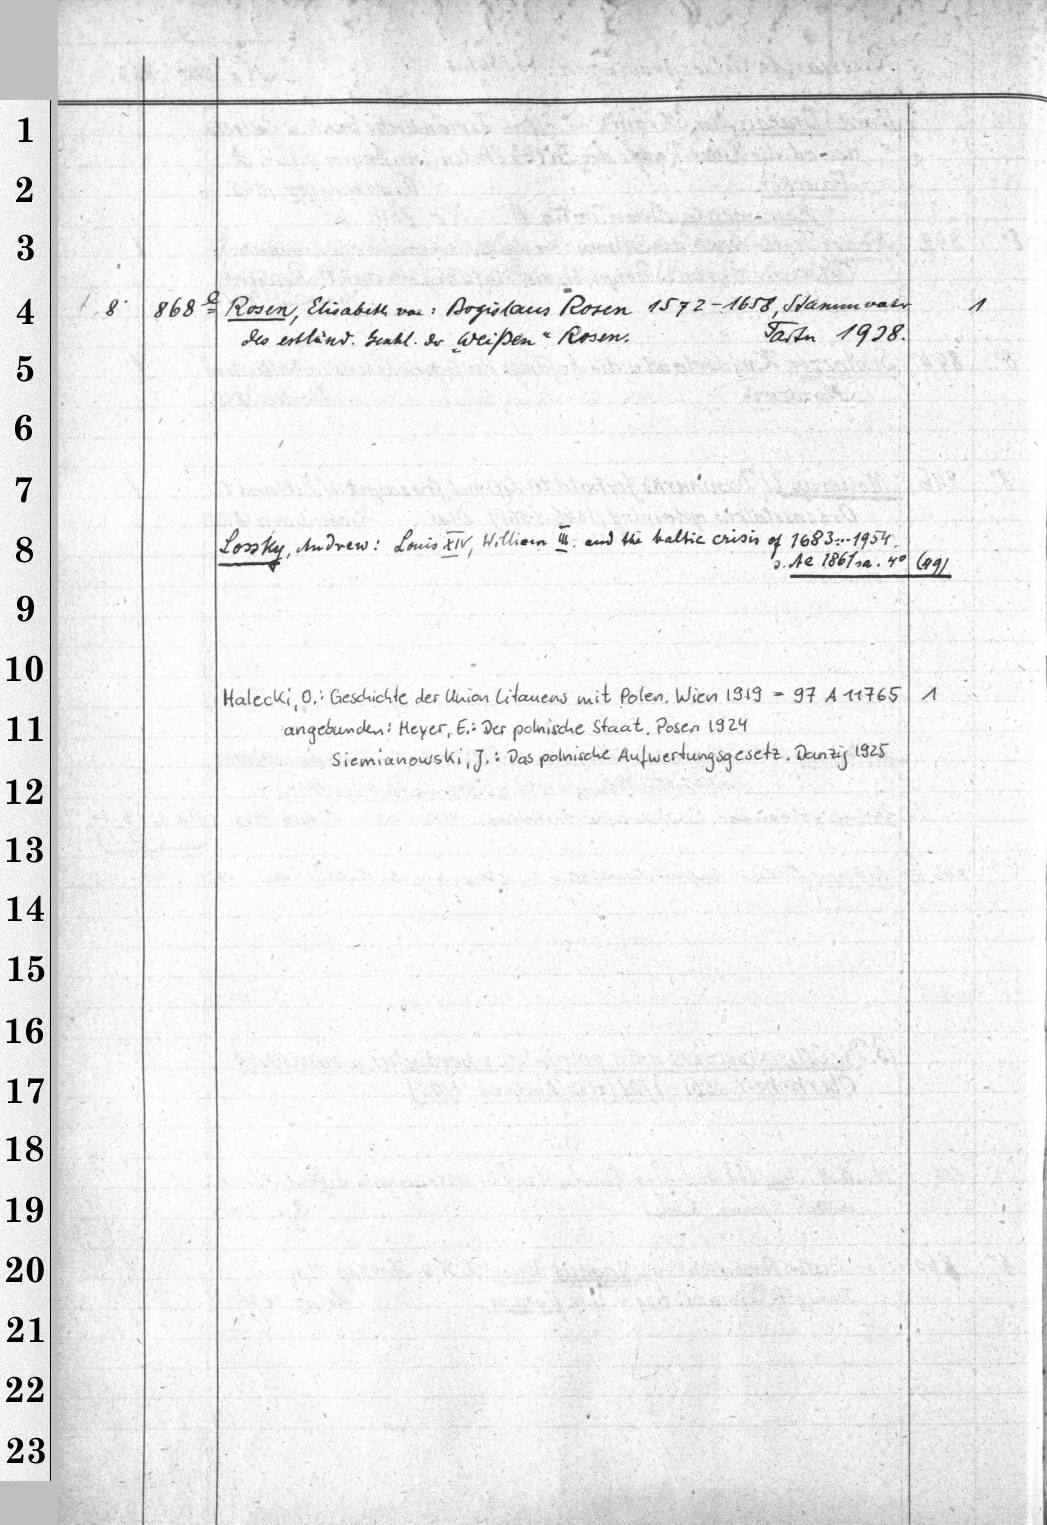 1
2
3
4
8° 868 e Rosen, Elisabeth von: Bogislaus Rosen 1572-1658, Stammvater 1
des estländ. Geschl. der „Weißen“ Rosen. Tartu 1938.
5
6
7
8
Lossky, Andrew: Louis XIV, William III. and the baltic crisis of 1683...1954.
s. Ae 1861 sa. 4° (Ag)
9
10
Halecki, O.: Geschichte der Union Litauens mit Polen. Wien 1919 = 97 A 11765 1
11
angebunden: Meyer, E.: Der polnische Staat. Posen 1924
Siemianowski, J.: Das polnische Aufwertungsgesetz. Danzig 1925
12
13
14
15
16
17
18
19
20
21
22
23